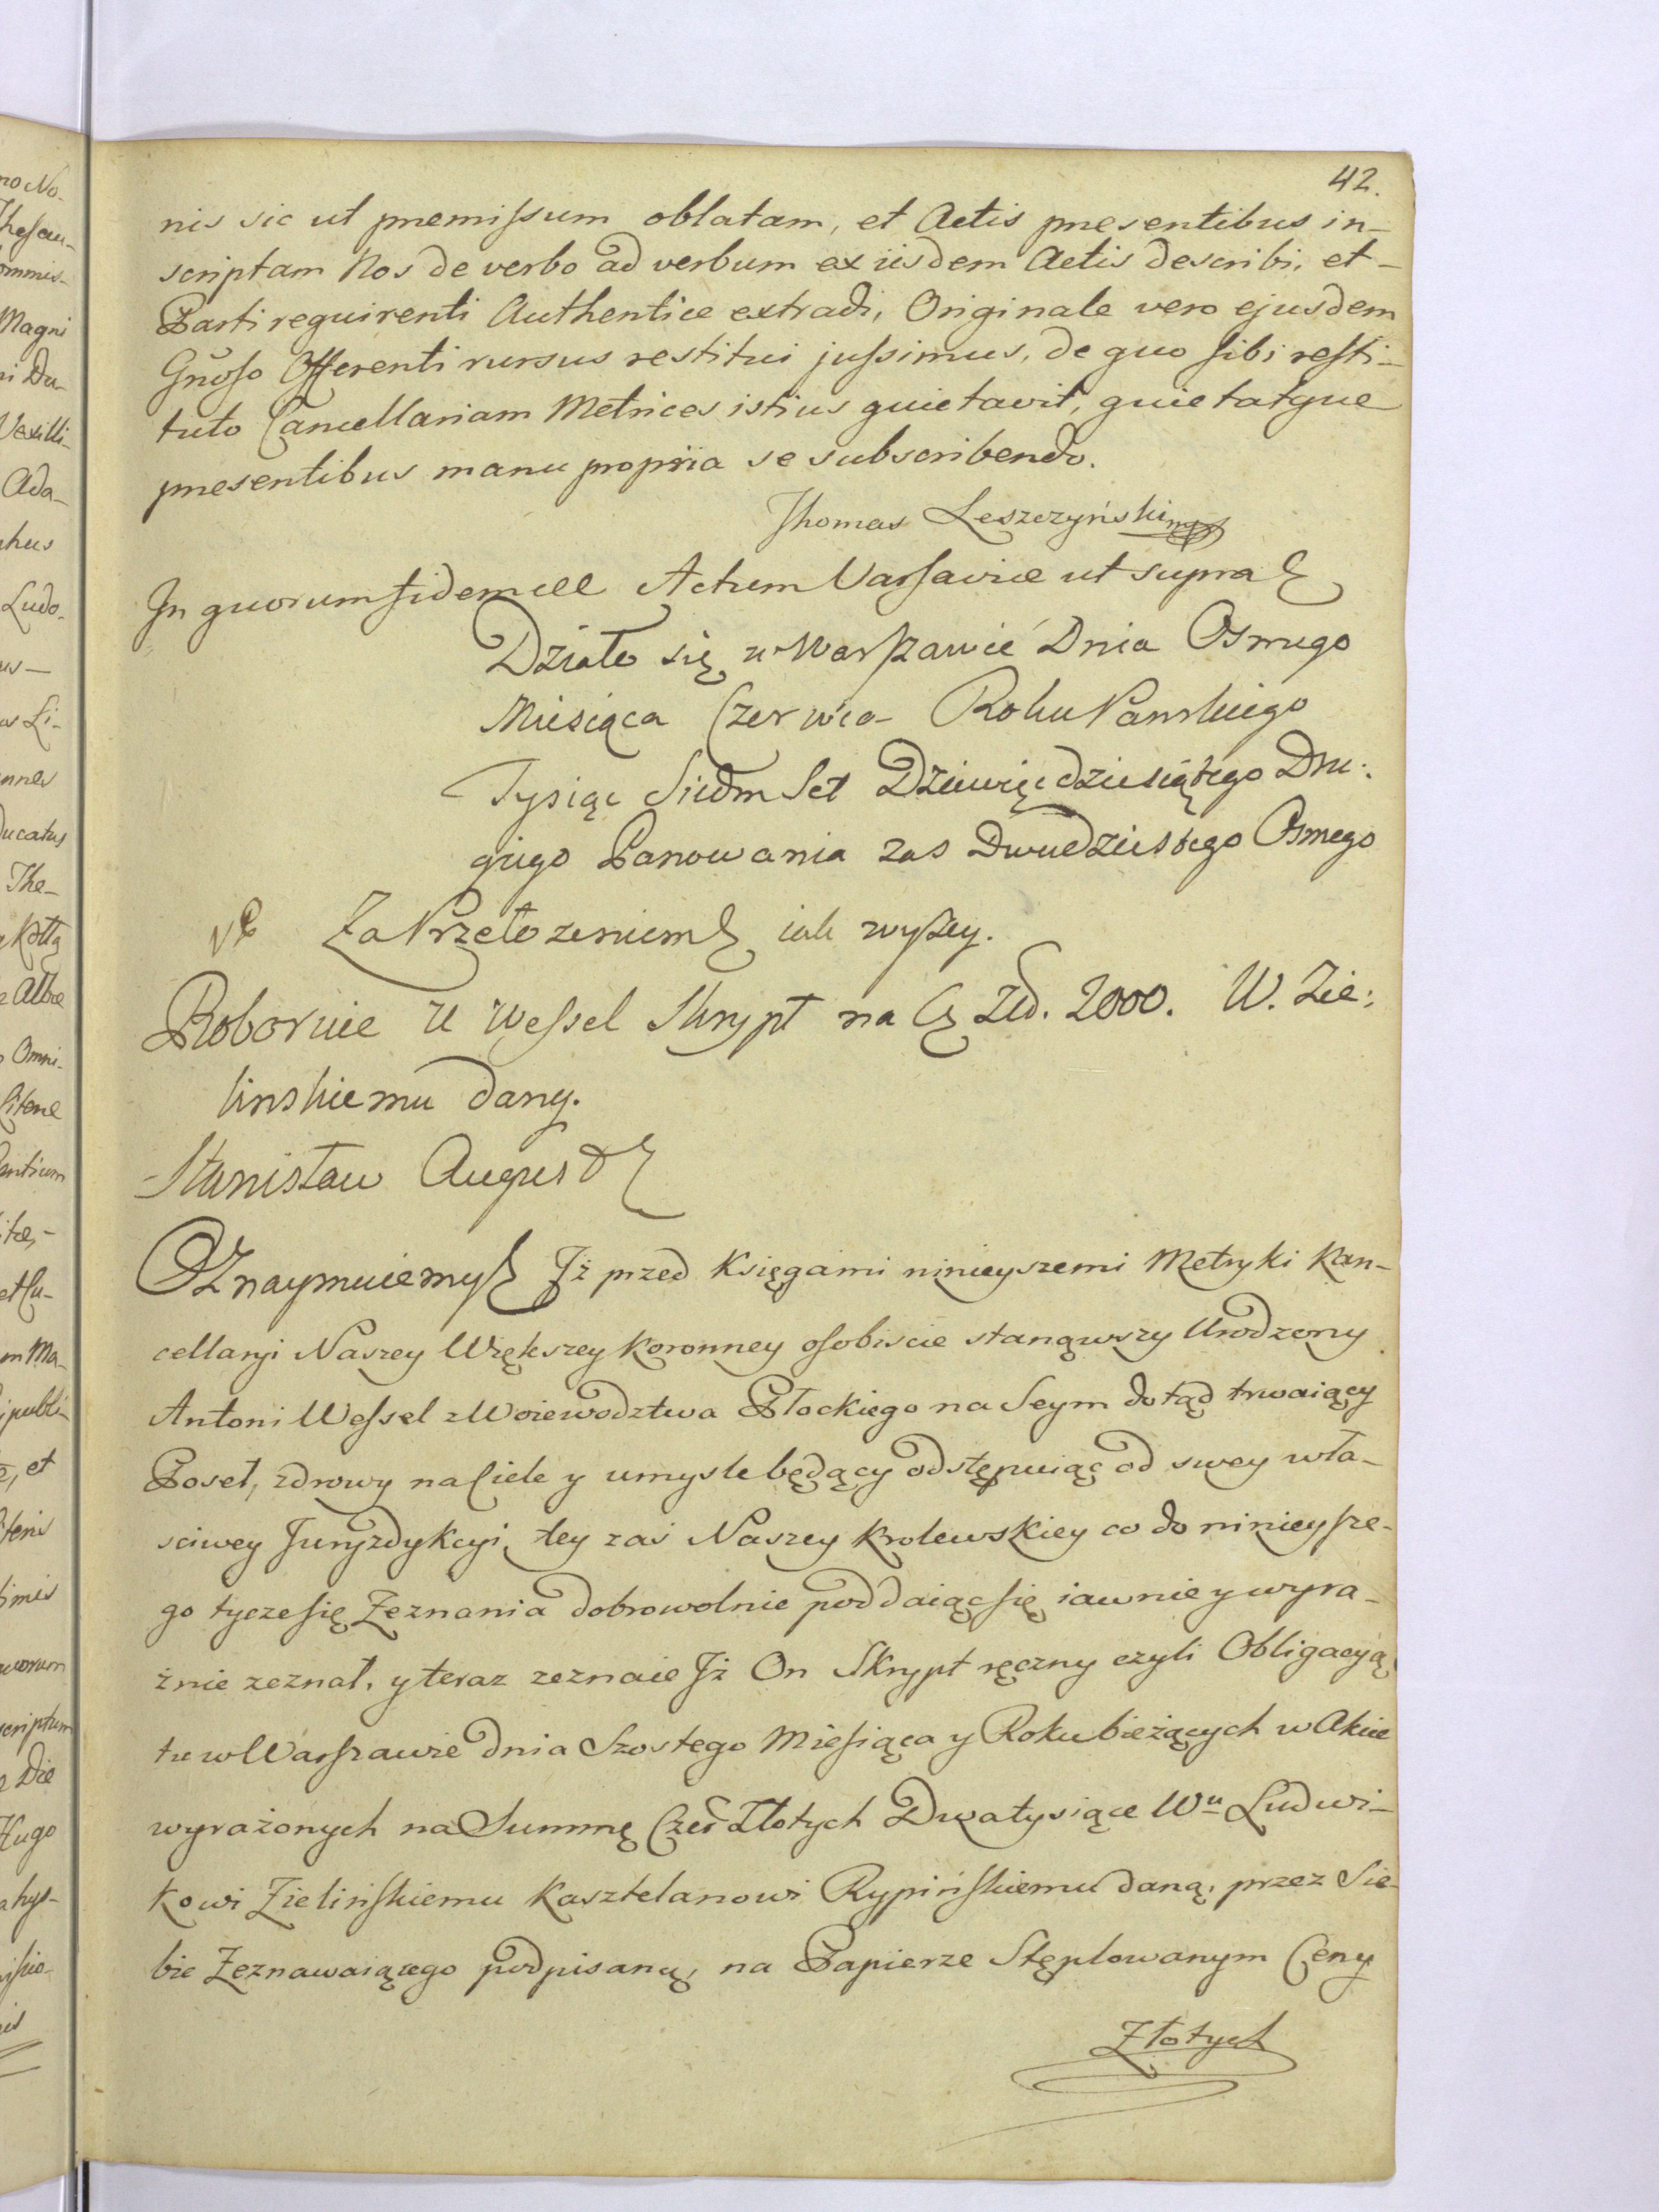 42.
nis sic ut premissum oblatam, et Actis presentibus in-
scriptam Nos de verbo ad verbum ex iisdem Actis describi, et-
Parti requirenti Authentice extradi, Originale vero ejusdem
Gnoso Offerenti rursus restitui jussimus, de quo sibi resti-
tuto Cancellariam Metrices istius quietavit, quietatque
presentibus manu propria se subscribendo.
Thomas Leszczyński mp
In quorum fidem &&& Actum Varsaviæ ut supra
Działo się w Warszawie Dnia Osmego
Miesiąca Czerwca Roku Panskiego
Tysiąc Siedm Set Dziewięcdziesiątego Dru:
giego Panowania zas Dwudziestego Osmego
Za Przełozeniem iak wyszey.
Roboruie U Wessel Skrypt na Cz Zł. 2000. W. Zie:
linskiemu dany.
Stanisław August
Oznaymuiemy Iż przed Księgami ninieyszemi Metryki Kan-
cellaryi Naszey Większey Koronney osobiscie stanąwszy Urodzony
Antoni Wessel z Woiewodztwa Płockiego na Seym dotąd trwaiący
Poseł, zdrowy na Ciele y umysle będący odstępuiąc od swey wła-
sciwey Juryzdykcyi, tey zaś Naszey Krolewskiey co do ninieysze-
go tycze się Zeznania dobrowolnie poddaiąc się iawnie y wyra-
żnie zeznał, y teraz zeznaie Iż On Skrypt ręczny czyli Obligacyą
tu w Warszawie dnia Szostego Miesiąca y Roku bieżących w Akcie
wyrażonych na Summę Czer Złotych Dwa tysiące Wu Ludwi-
kowi Zielińskiemu Kasztelanowi Rypińskiemu daną, przez Sie-
bie Zeznawaiącego podpisaną, na Papierze Stęplowanym Ceny
Złotych